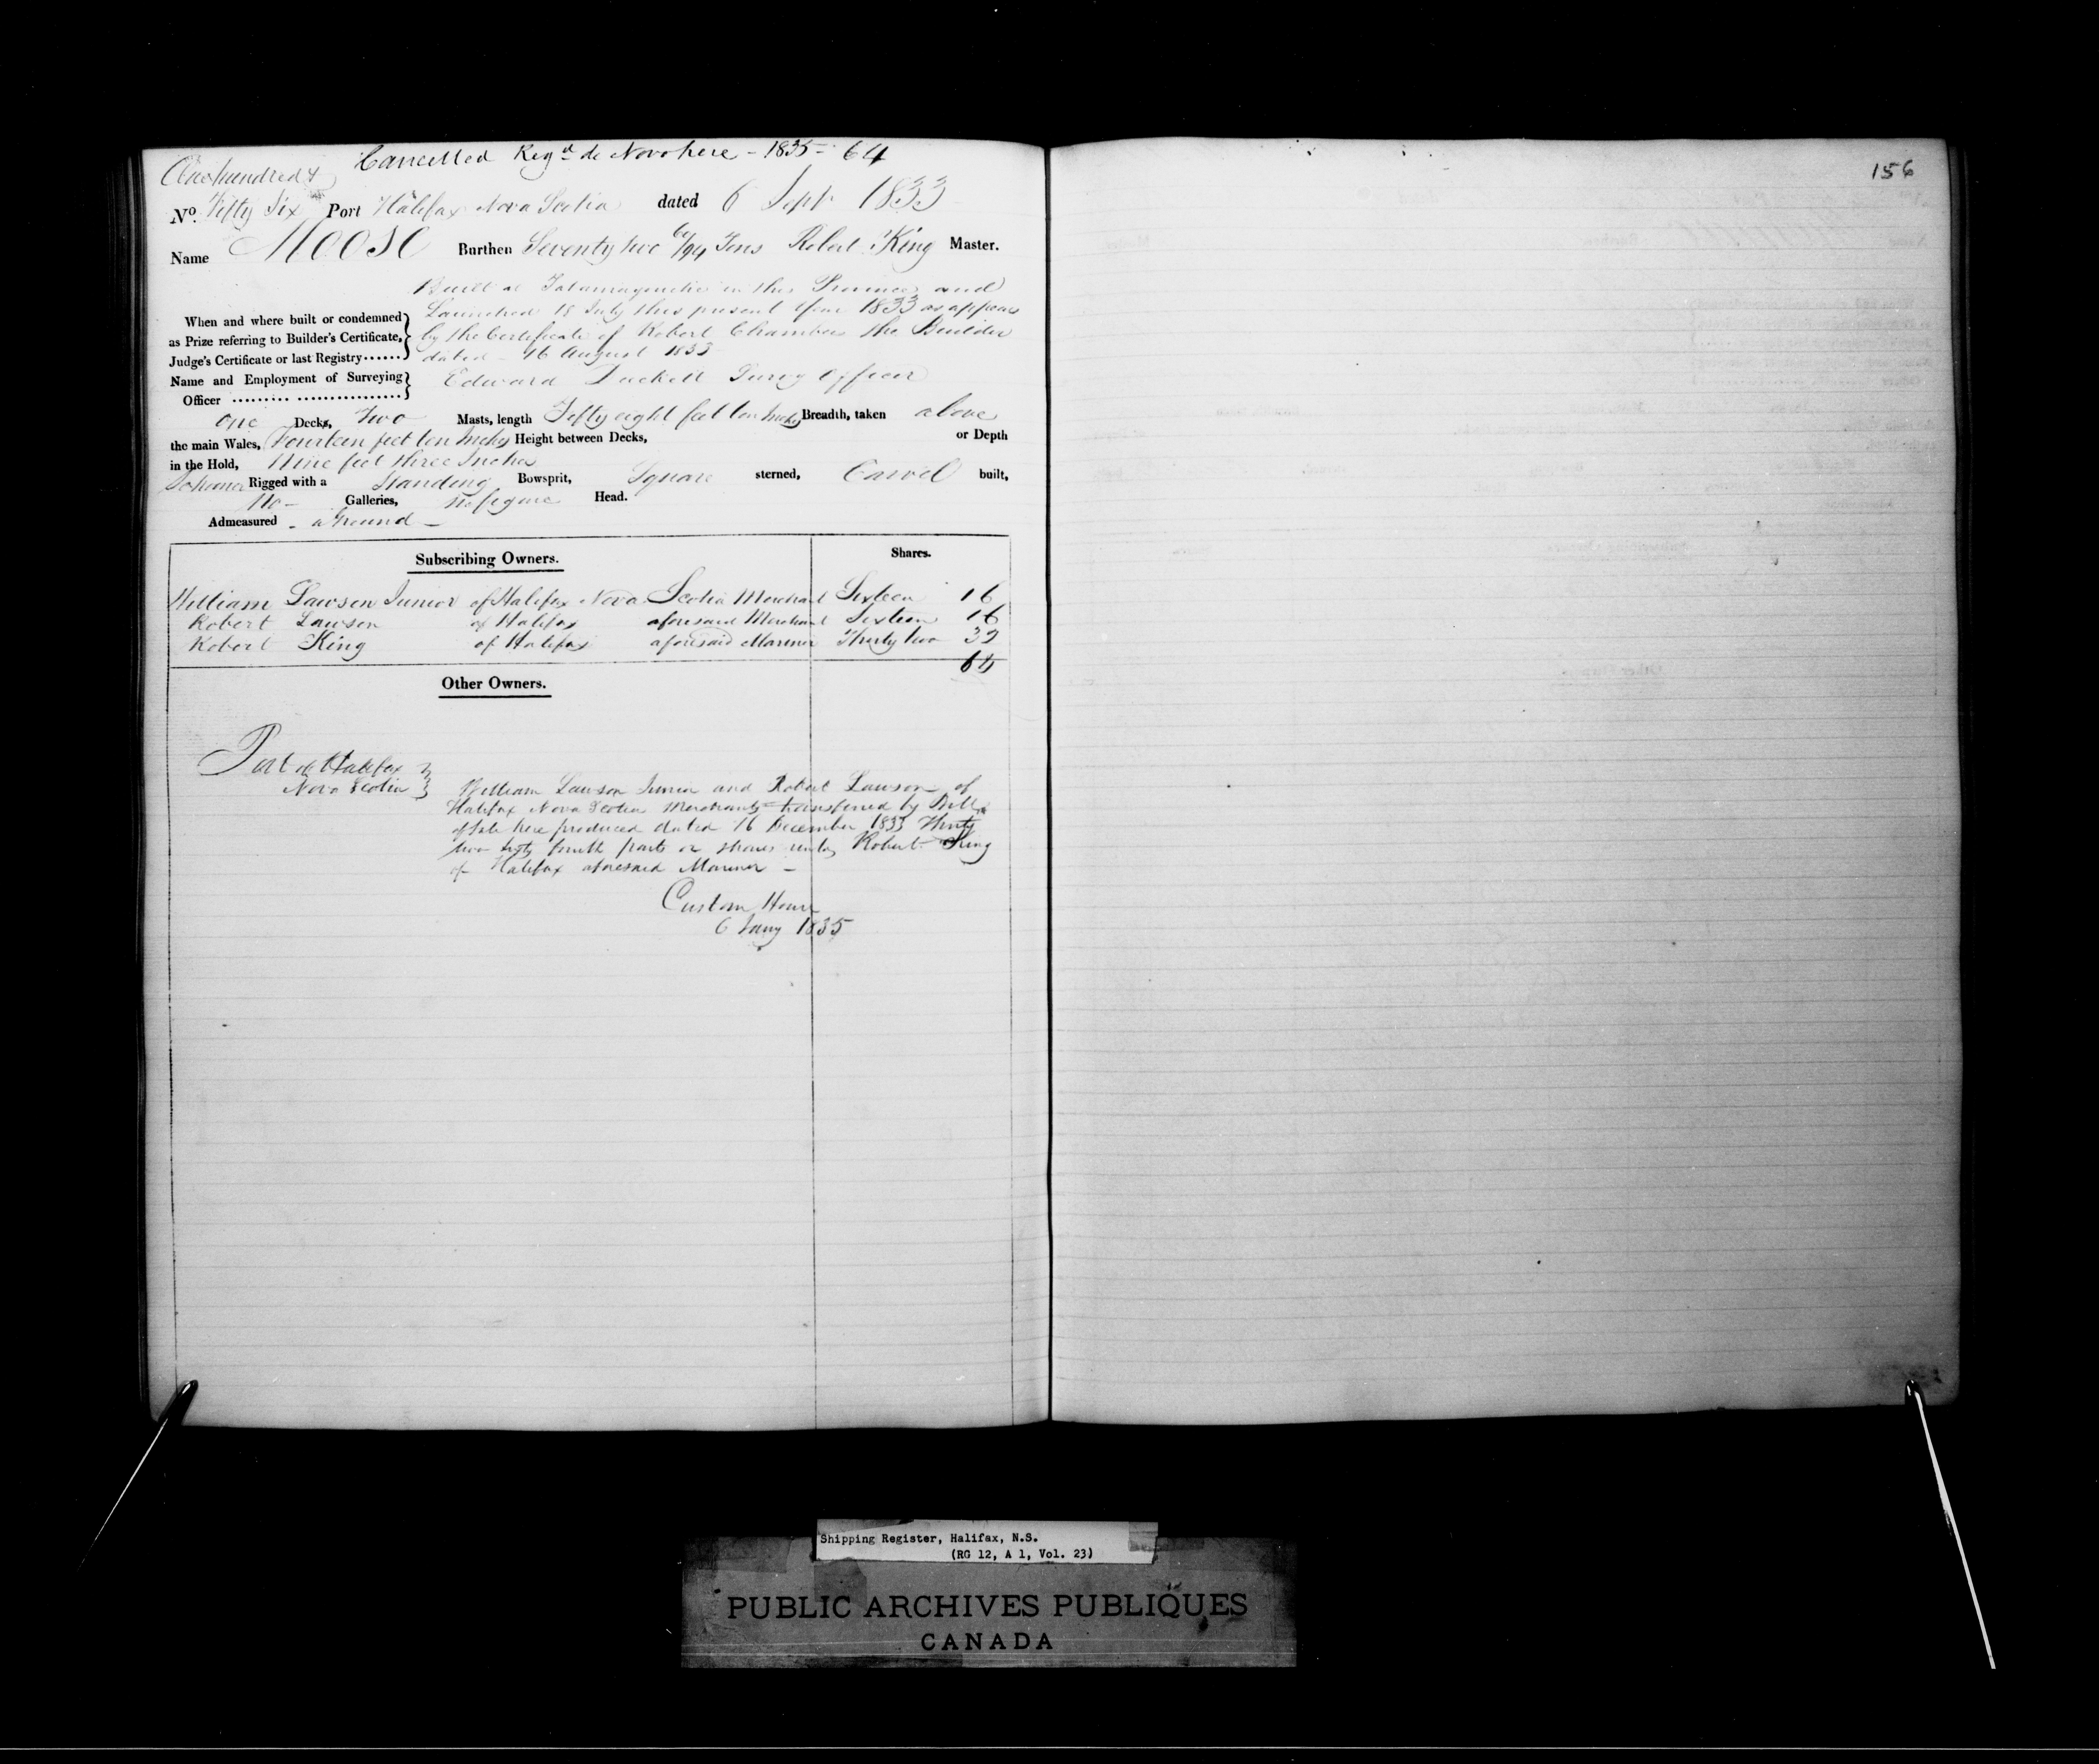 Cancelled Regd de Novo here - 1835 - 64
One hundred &
No. Fifty Six Port Halifax Nova Scotia dated 6 Sept 1833
Name Moose Burthen Seventy two /94 Tons Robert King Master.
Built at Tatamagouche in this Province and
Launched 18 July this present year 1833 as appears
by the Certificate of Robert Chambers the Builder
dated 16 August 1833
When and where built or condemned
as Prize referring to Builder's Certificate,
Judge's Certificate or last Registry
Name and Employment of Surveying
Officer
Edward Officer
One Decks, Two Masts, length Fifty eight feet ten Inches Breadth, taken above
the main Wales, Fourteen feet ten Inches Height between Decks, or Depth
in the Hold, Nine feet three Inches
Schooner Rigged with a Standing Bowsprit, Square sterned, Carvel built,
No - Galleries, no figure Head.
Admeasured - a Ground -
Subscribing Owners. Shares.
William Lawson Junior of Halifax Nova Scotia Merchant Sixteen 16
Robert Lawson of Halifax aforesaid Merchant Sixteen 16
Robert King of Halifax aforesaid Mariner Thirty two 32
64
Other Owners.
Port of Halifax
Nova Scotia
William Lawson Junior and Robert Lawson of
Halifax Nova Scotia Merchants transferred by Bill
of Sale here produced dated 16 December 1833 Thirty
two sixty fourth parts or shares unto Robert King
of Halifax aforesaid Mariner -
Custom House
6 Jany 1835
156
Shipping Register, Halifax, N.S.
(RG 12, A 1, Vol. 23)
PUBLIC ARCHIVES PUBLIQUES
CANADA